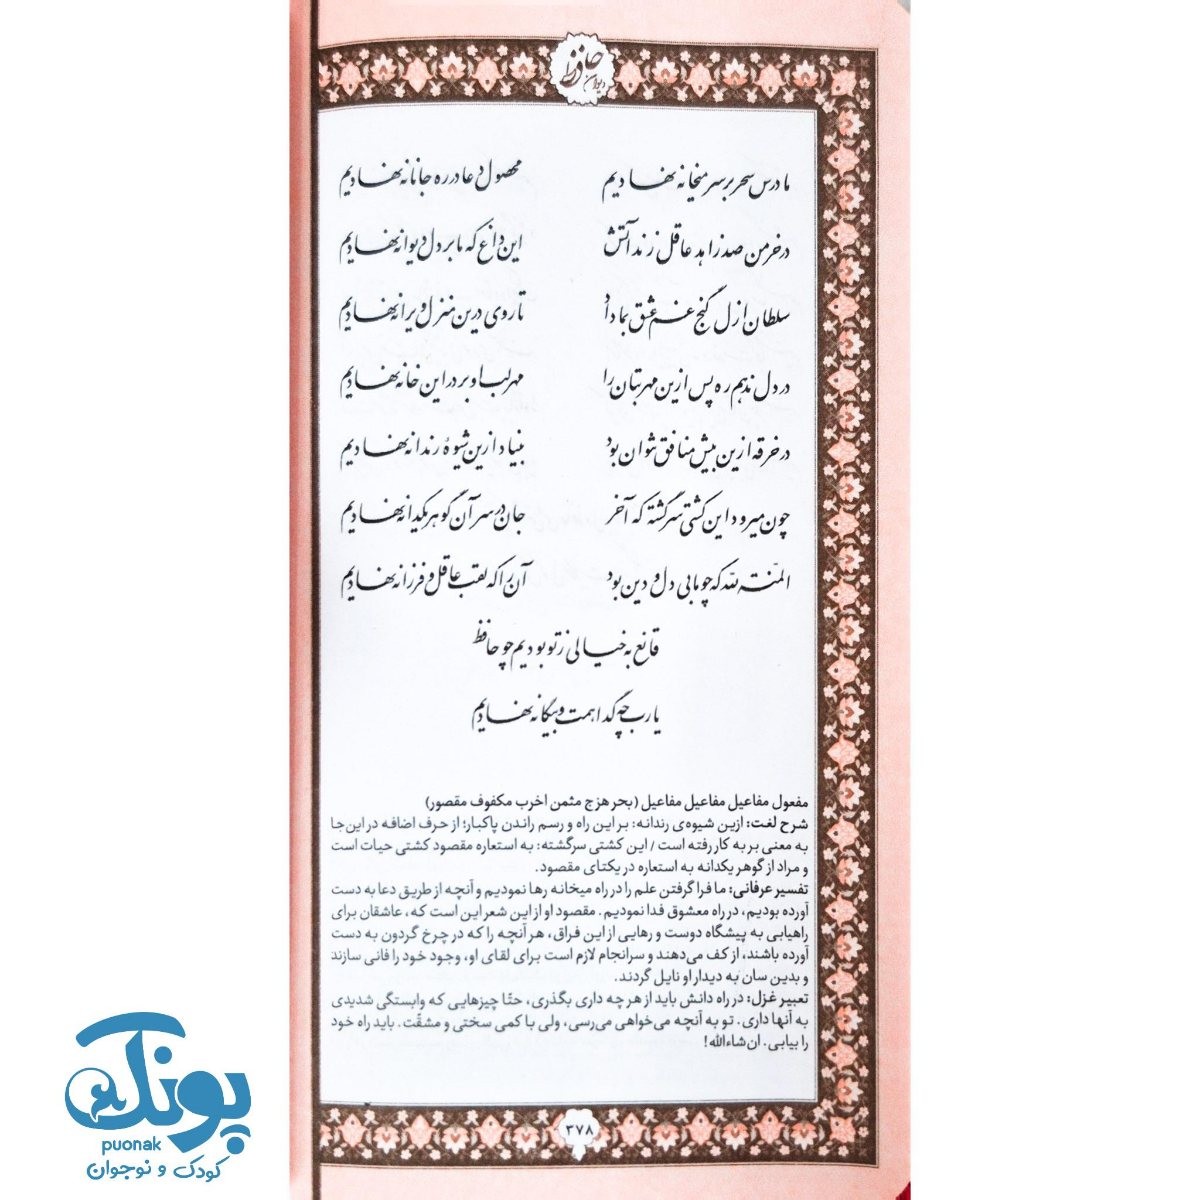 دیوان حافظ
ما درس سحر بر سر میخانه نهادیم محصول دعا در ره جانانه نهادیم
در خرمن صد زاهد عاقل زند آتش این داغ که ما بر دل دیوانه نهادیم
سلطان ازل گنج غم عشق بما داد تا روی درین منزل ویرانه نهادیم
در دل ندهم ره پس ازین مهر بتان را مهر لب او بر در این خانه نهادیم
در خرقه ازین بیش منافق نتوان بود بنیاد ازین شیوهٔ رندانه نهادیم
چون میرود این کشتی سرگشته که آخر جان در سر آن گوهر یکدانه نهادیم
المنّة لله که چو ما بی دل و دین بود آن را که لقب عاقل و فرزانه نهادیم
قانع به خیالی ز تو بودیم چو حافظ
یارب چه گدا همت و بیگانه نهادیم
مفعول مفاعیل مفاعیل مفاعیل (بحر هزج مثمن اخرب مکفوف مقصور)
شرح لغت: ازین شیوه‌ی رندانه: بر این راه و رسم راندن پاکبار؛ از حرف اضافه در این‌جا
به معنی بر به کار رفته است / این کشتی سرگشته: به استعاره مقصود کشتی حیات است
و مراد از گوهر یکدانه به استعاره در یکتای مقصود.
تفسیر عرفانی: ما فرا گرفتن علم را در راه میخانه رها نمودیم و آنچه از طریق دعا به دست
آورده بودیم، در راه معشوق فدا نمودیم. مقصود او از این شعر این است که، عاشقان برای
راهیابی به پیشگاه دوست و رهایی از این فراق، هر آنچه را که در چرخ گردون به دست
آورده باشند، از کف می‌دهند و سرانجام لازم است برای لقای او، وجود خود را فانی سازند
و بدین سان به دیدار او نایل گردند.
تعبیر غزل: در راه دانش باید از هر چه داری بگذری، حتّا چیزهایی که وابستگی شدیدی
به آنها داری. تو به آنچه می‌خواهی می‌رسی، ولی با کمی سختی و مشقّت. باید راه خود
را بیابی. ان‌شاءالله!
۳۷۸
پونک
puonak
کودک و نوجوان